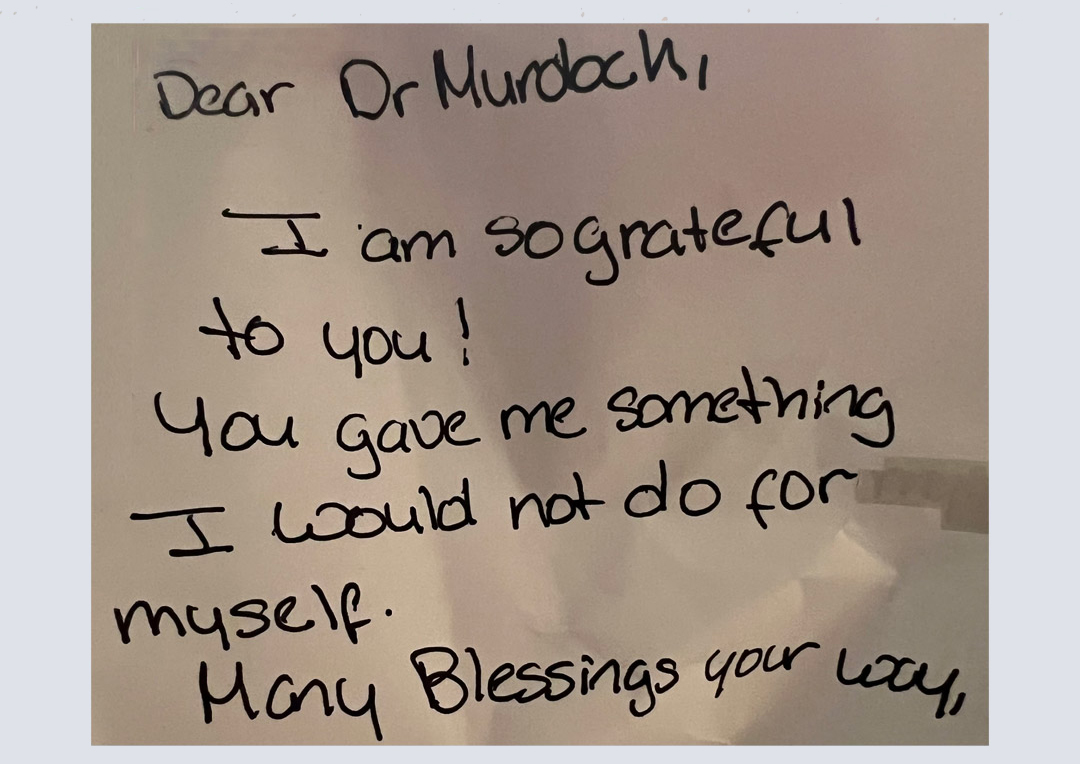 Dear Dr Murdock,
I am so grateful
to you!
You gave me something
I would not do for
myself.
Many Blessings your way,